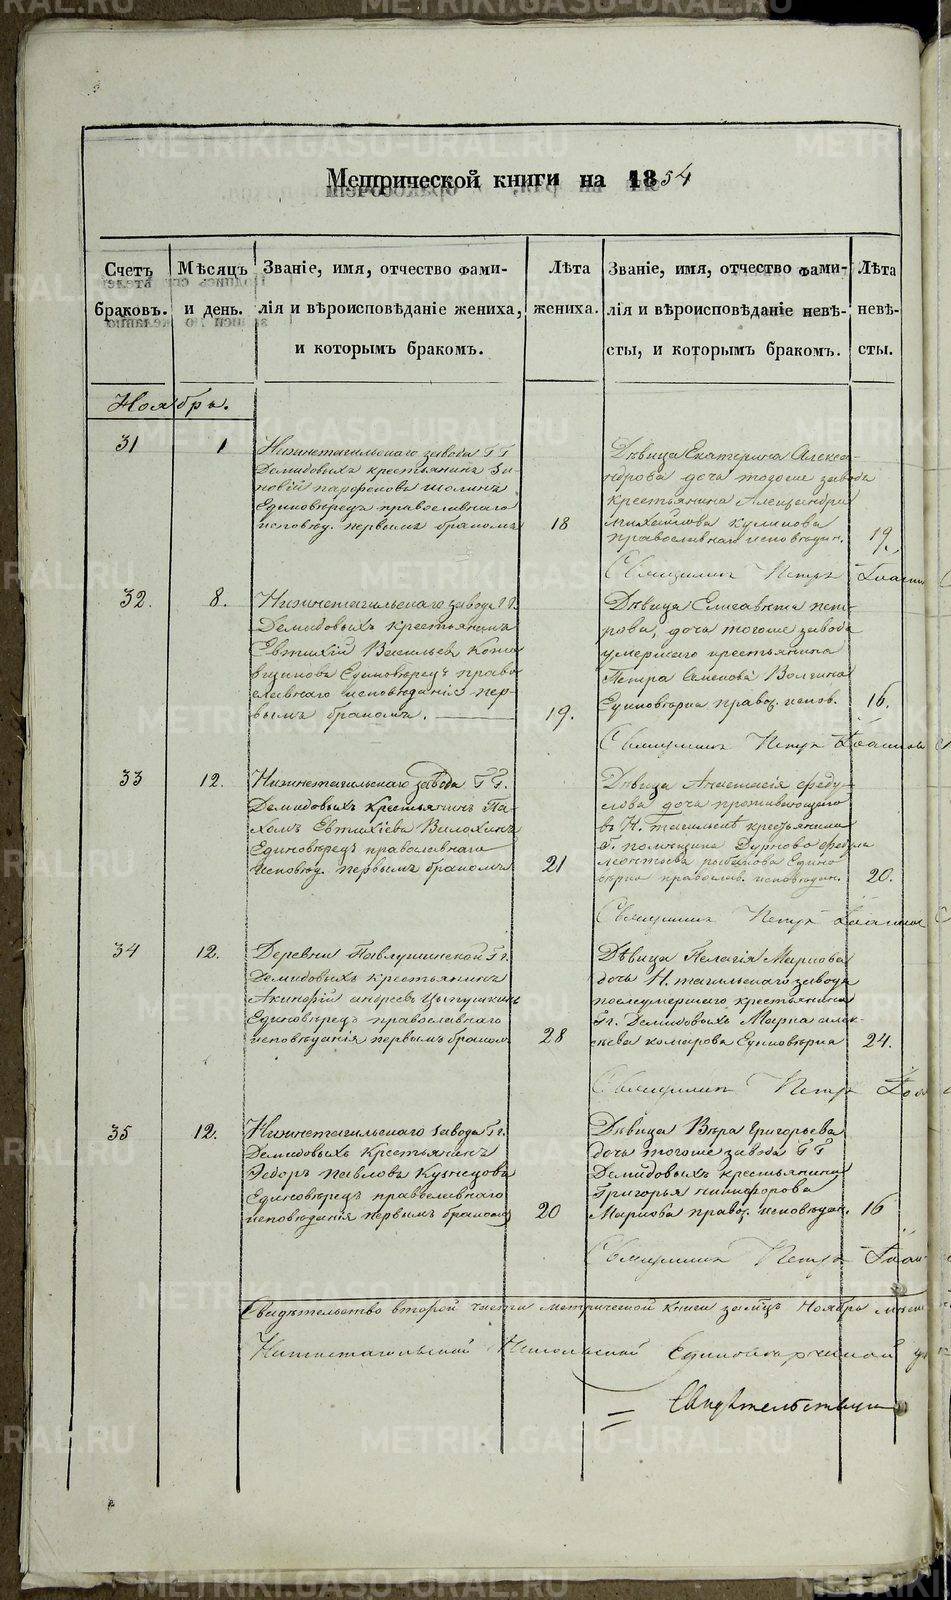 Метрической книги на 1854
Счетъ браковъ.
Мѣсяцъ и день.
Званіе, имя, отчество фами-
лія и вѣроисповѣданіе жениха,
и которымъ бракомъ.
Лѣта
жениха.
Званіе, имя, отчество фами-
лія и вѣроисповѣданіе невѣ-
сты, и которымъ бракомъ.
Лѣта
невѣ-
сты.
Ноябрь.
31
1
Нижнетагильскаго завода ГГ
Демидовыхъ крестьянинъ Зи-
новій парфеновъ
Единовѣрецъ православнаго
исповѣд. первымъ бракомъ
18
Дѣвица Екатерина Алекса-
ндрова дочь тогоже завода
крестьянина Александра
Михайлова куликова
православнаго исповѣдан.
19.
Священникъ Петръ Іоанн
32.
8.
Нижнетагильскаго завода Г.Г.
Демидовыхъ крестьянинъ
Евтихій Васильевъ
Единовѣрецъ право
славнаго исповѣданія пер-
вымъ бракомъ.
19.
Дѣвица Елисавета пет-
рова, дочь тогоже завода
умершаго крестьянина
Петра Семенова Волгина
Единовѣрка правос. испов.
16.
Священникъ Петръ Іоаннов
33
12.
Нижнетагильскаго завода ГГ.
Демидовыхъ Крестьянинъ Па-
хомъ Евтихіевъ Вилохинъ
Единовѣрецъ православнаго
исповѣд. первымъ бракомъ
21
Дѣвица Анастасія феду-
лова дочь проживающего
въ Н. Тагильскѣ крестьянина
Г. помѣщика Дурново федула
леонтьева рыбакова Едино
вѣрка православ. исповѣдан.
20.
Священникъ Петръ Іоанно
34
12.
Деревни Павлушинской Гг.
Демидовыхъ крестьянинъ
Акинфій андреевъ Цыпушкинъ
Единовѣрецъ православнаго
исповѣданія первымъ бракомъ
28
Дѣвица Пелагія Маркова
дочь Н. тагильскаго завода
послѣумершаго крестьянина
Гг. Демидовыхъ Марка алек-
сѣева комарова Единовѣрка
24.
Священникъ Петръ Іоа
35
12.
Нижнетагильскаго завода Гг.
Демидовыхъ Крестьянинъ
Федоръ павловъ Кузнецовъ
Единовѣрецъ православнаго
исповѣданія первымъ бракомъ
20
Дѣвица Вѣра григорьева
дочь тогоже завода ГГ
Демидовыхъ крестьянина
Григорья никифорова
Маркова правос. исповѣдан.
16
Священникъ Петръ Іоан
Свидѣтельство второй части метрической книги замѣцъ Ноябрь
Нижнетагильской Никольской Единовѣрческой
Свидѣтельствu
METRIKI.GASO-URAL.RU